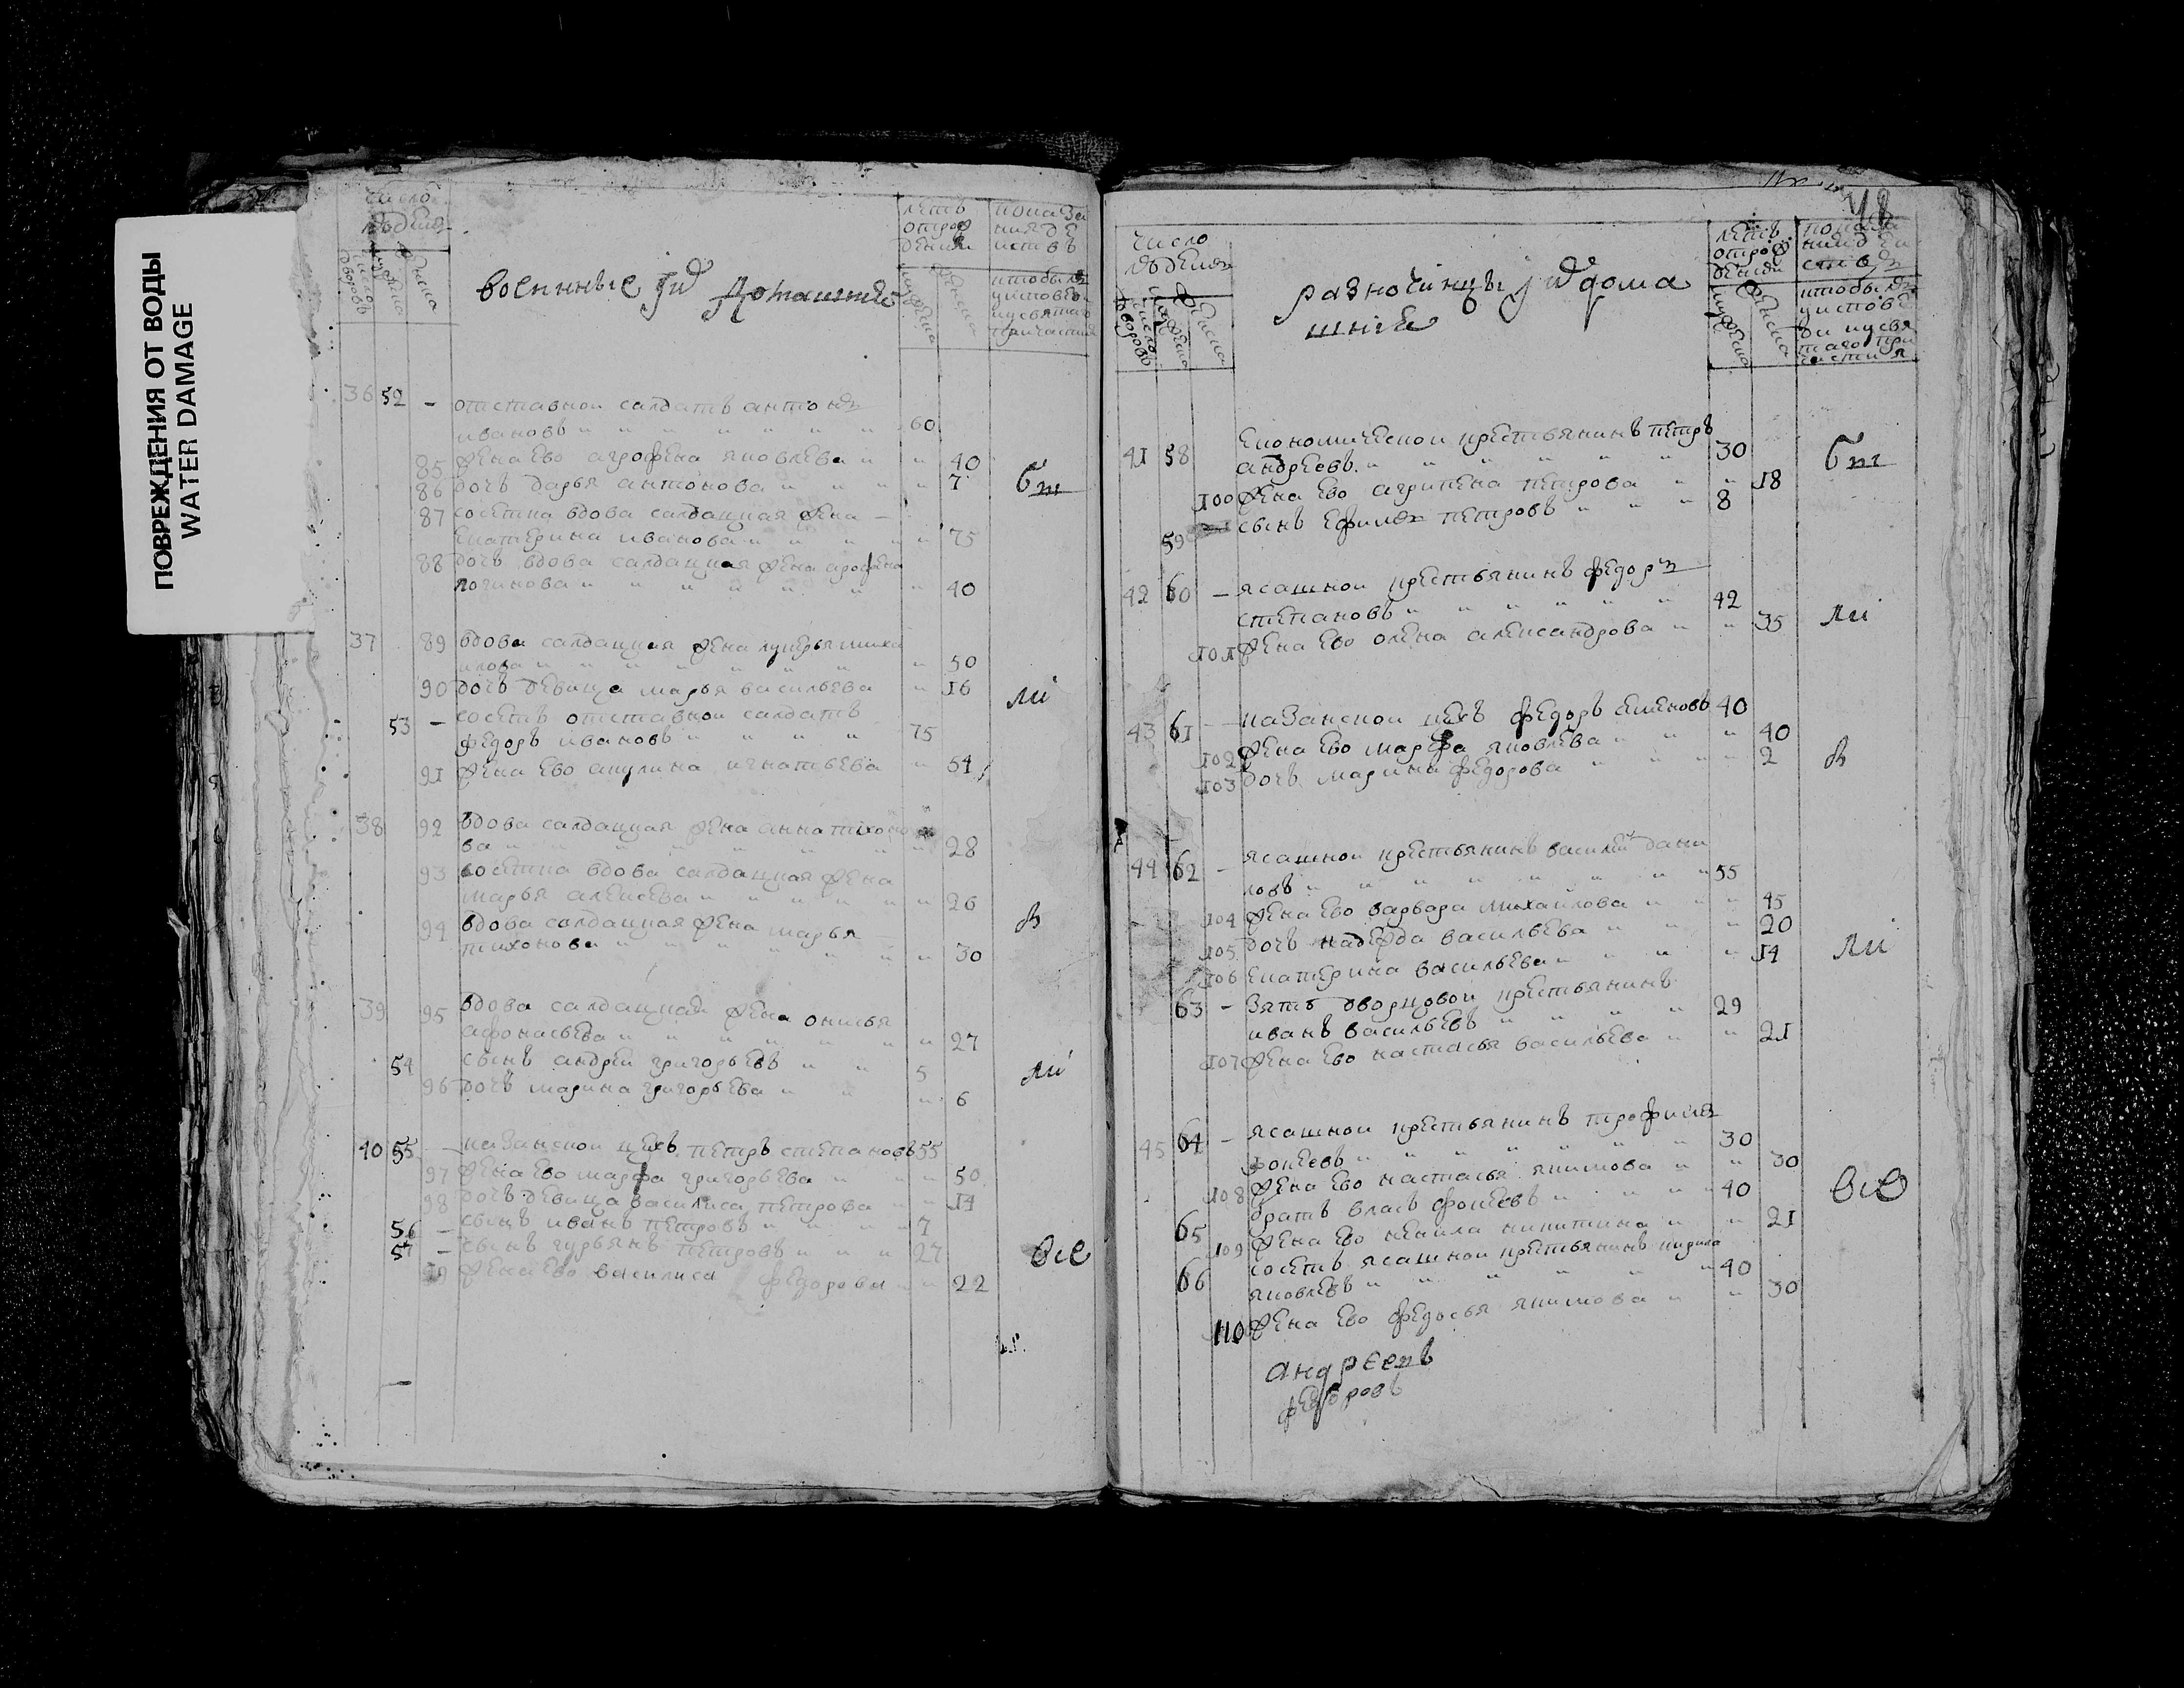 ПОВРЕЖДЕНИЯ ОТ ВОДЫ
WATER DAMAGE
число
людей
летъ
отрож
дения
показа
ния
военныя
36 52 – отставнои салдатъ антонъ
ивановъ 60
85 жена ево агрофена яковлева 40
86 дочь дарья антонова 7
87 соседка вдова салдацкая жена
екатерина иванова 75
88 дочь вдова салдацкая жена
логинова 40
37 89 вдова салдацкая жена лукерья миха
илова 50
90 дочь девица марья васильева 16
53 – соседъ отставнои салдатъ
федоръ ивановъ 75
91 жена ево акулина игнатьева 54
38 92 вдова салдацкая жена анна тихоно
ва 28
93 соседка вдова салдацкая жена
марья алексеева 26
94 вдова салдацкая жена марья
тихонова 30
39 95 вдова салдацкая жена онисья
афонасьева 27
54 сынъ андреи григорьевъ 5
96 дочь марина григорьева 6
40 55 – казанскои цехъ петръ степановъ 55
97 жена ево марфа григорьева 50
98 дочь девица василиса петрова 14
56 – сынъ иванъ петровъ 7
57 – сынъ гурьянъ петровъ 27
99 жена ево василиса федорова 22
48
число
людей
летъ
отрож
дения
разночинцы
41 58 економическои крестьянинъ петръ
андреевъ 30
100 жена ево агрипена петрова 18
59 сынъ ефимъ петровъ 8
42 60 – ясашнои крестьянинъ федоръ
степановъ 42
101 жена ево олена александрова 35
43 61 – казанскои цехъ федоръ семеновъ 40
102 жена ево марфа яковлева 40
103 дочь марина федорова 2
44 62 – ясашнои крестьянинъ василеи дани
ловъ 55
104 жена ево варвара михаилова 45
105 дочь надежда васильева 20
106 екатерина васильева 14
63 – зять дворцовои крестьянинъ
иванъ васильевъ 29
107 жена ево настасья васильева 21
45 64 – ясашнои крестьянинъ трофимъ
фокеевъ 30
108 жена ево настасья якимова 30
65 братъ власъ фокеевъ 40
109 жена ево ненила никитина 21
66 соседъ ясашнои крестьянинъ кирила
яковлевъ 40
110 жена ево федосья якимова 30
федоровъ